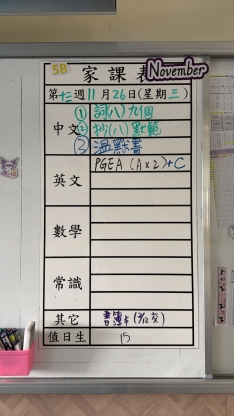 5B
家課表
November
第十三週11月26日(星期三)
中文
① 詞(八)九個
② 抄(八)默範
③ 温默書
英文
PGEA (A×2)+C
數學
常識
其它
值日生
15